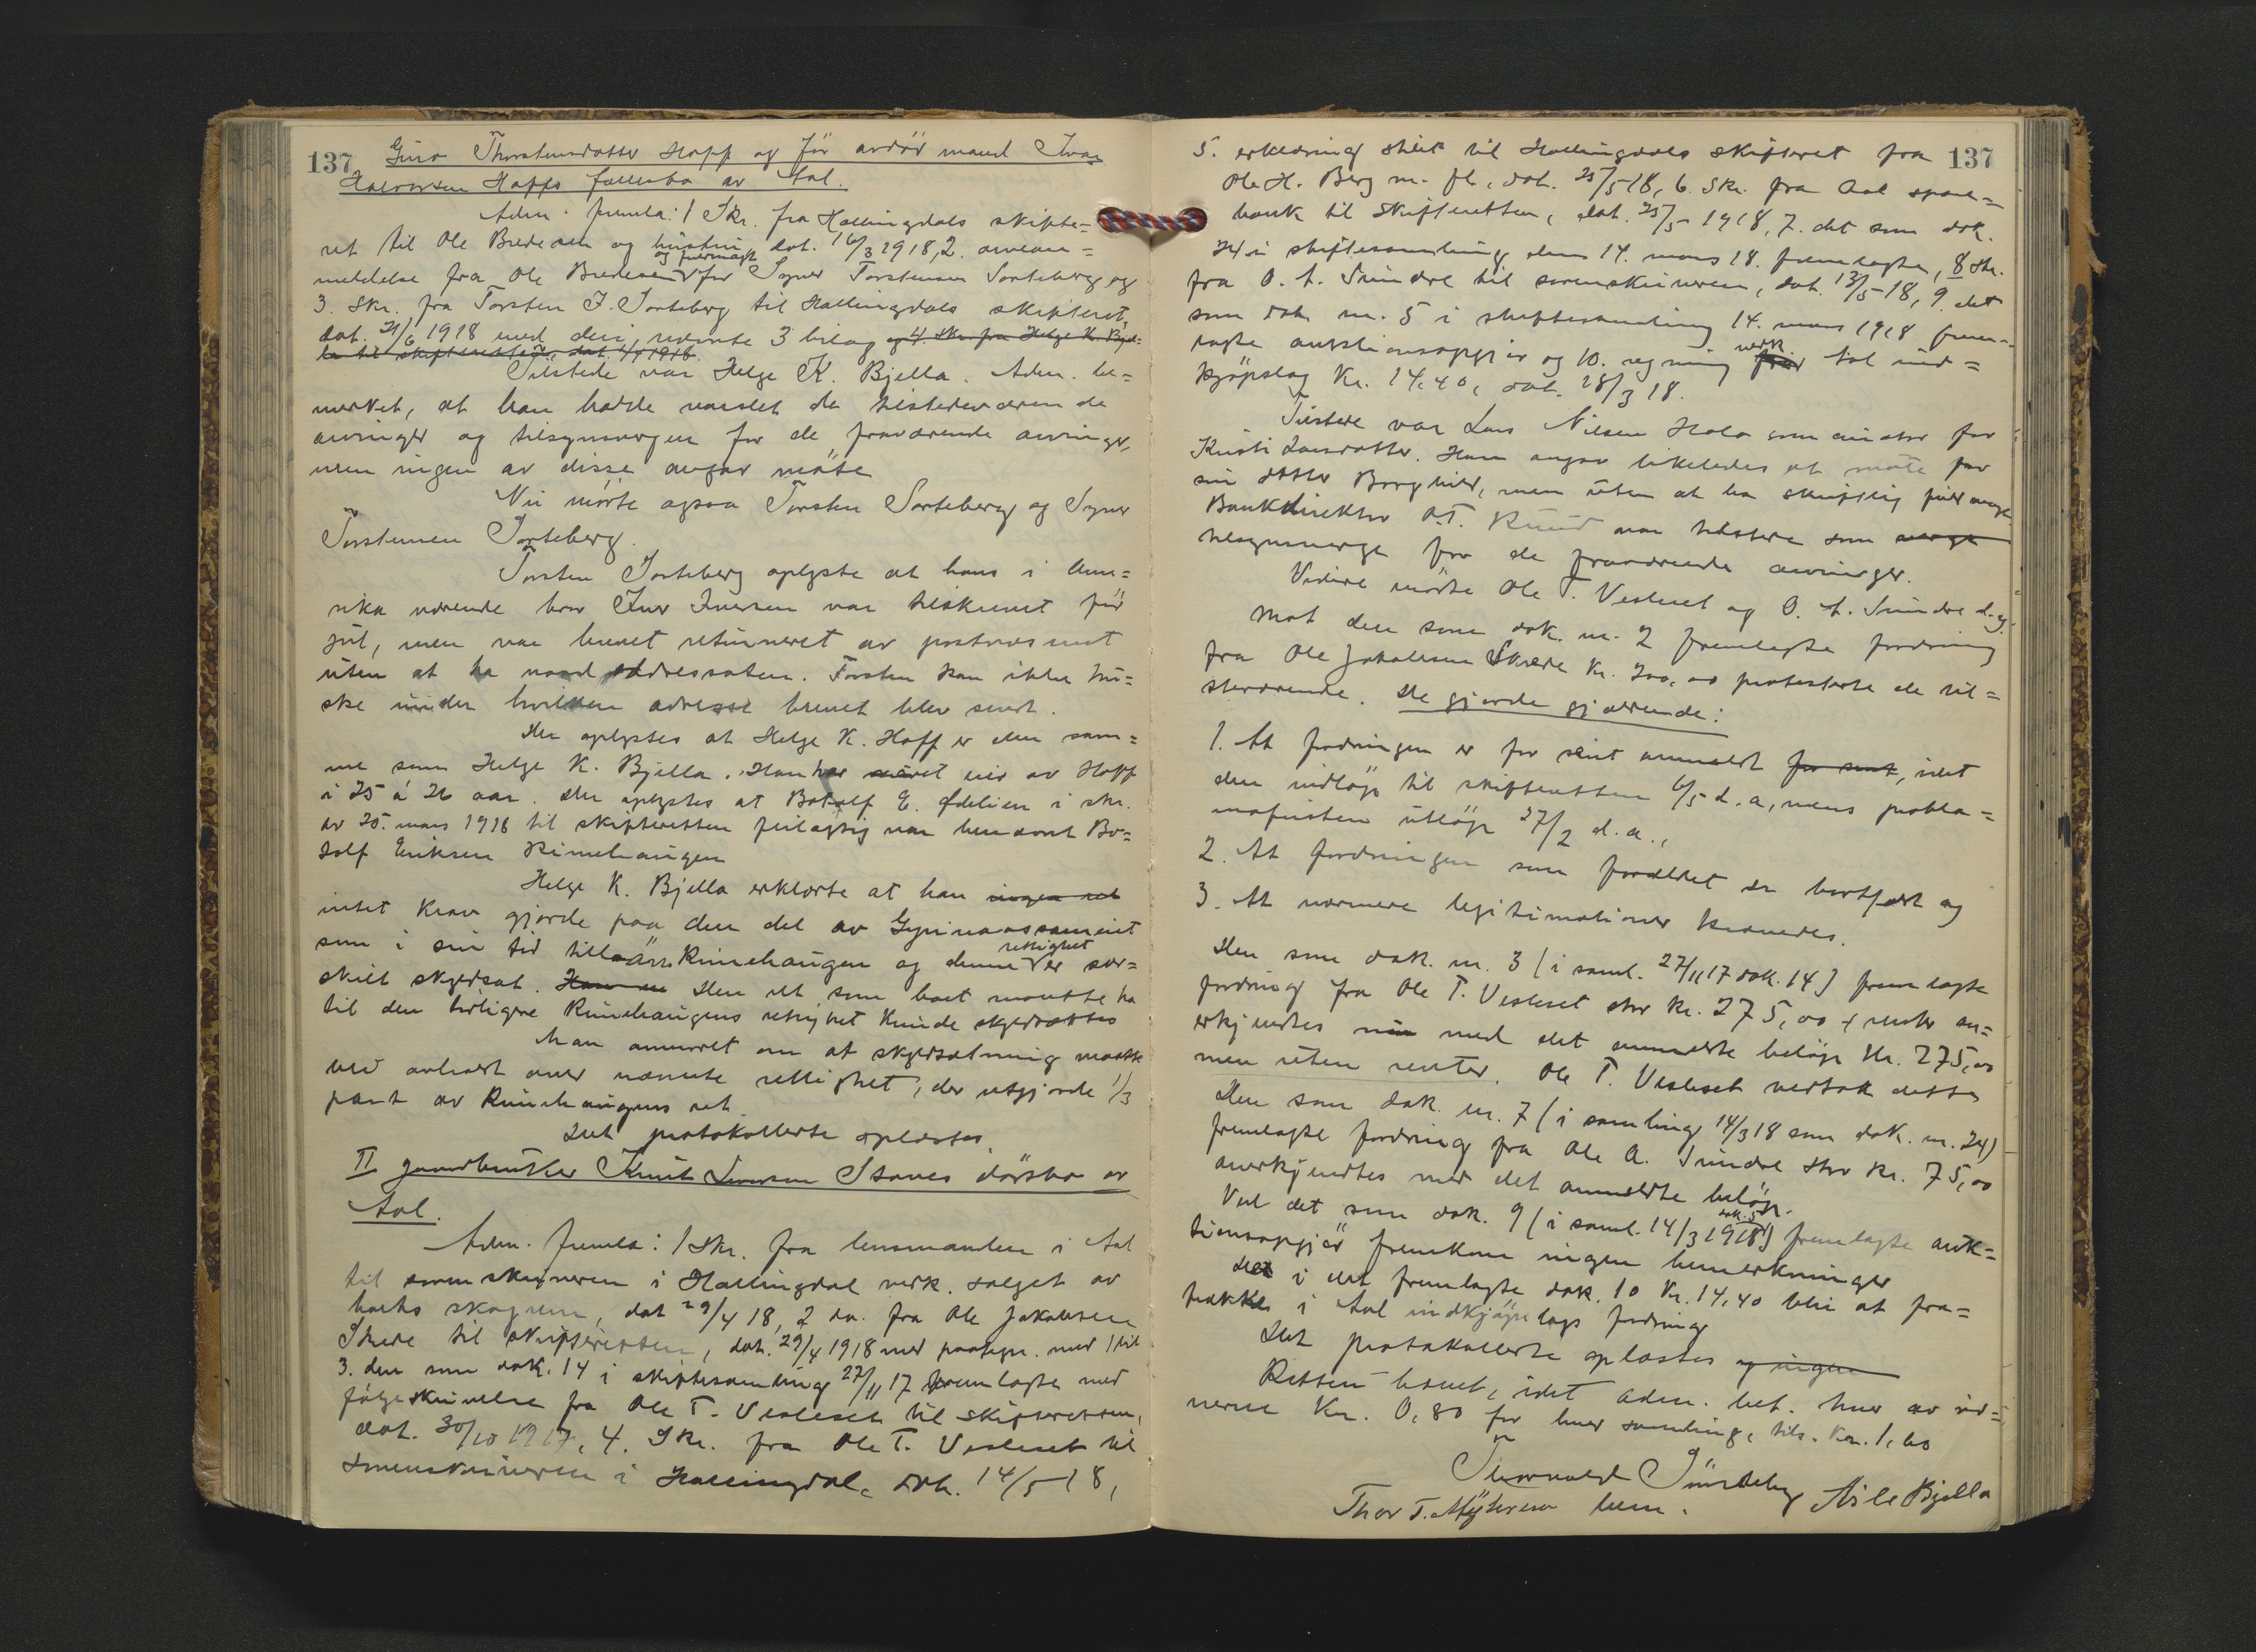 137 Guro Thorstensdotter Hoff og før avdød mand Ivar
Halvorsen Hoffs fællesbo av Aal.
Adm. fremla: 1 Skr. fra Hallingdals skifte=
ret til Ole Bredesen og hustru, dat. 16/3 1918, 2.
og fuldmagt
meddelelse fra Ole Bredesen for Syver Torstensen Sorteberg og
3. Skr. fra Torsten I. Sorteberg til Hallingdals skifteret,
dat. 21/6 1918 med deri nævnte 3 bilag og 4 Skr. fra Helge K. Bjel=
la til skifteretten, dat. 4/4 1918.
Tilstede var Helge K. Bjella. Adm. be=
merket, at han hadde varslet de tilstedeværende
arvinger og tilsynsvergen for de fraværende arvinger,
men ingen av disse avgav møte
Nu møtte ogsaa Torsten Sorteberg og Syver
Torstensen Sorteberg.
Torsten Sorteberg oplyste at hans i Ame=
rika værende bror Iver Iversen var tilskrevet før
jul, men var brevet returneret av postvæsenet
uten at ha naadd addressaten. Torsten kan ikke hu=
ske under hvilken adresse brevet blev sendt.
Der oplystes at Helge K. Hoff er den sam=
me som Helge K. Bjella. Han har været eier av Hoff
i 25 à 26 aar. Der oplystes at Botolf E. Ødelien i skr.
av 25. mars 1918 til skifteretten feilagtig var benævnt Bo=
tolf Eriksen Rimehaugen
Helge K. Bjella erklærte at han ingen ret
intet krav gjorde paa den del av Gyrinaossameiet
rettighet
som i sin tid tillaa Rimehaugen og denne er sær=
skilt skyldsat. Den ret, som boet maatte ha
til den tidligere Rimehaugens rettighet kunde skyldsættes
Man anmodet om at skyldsætning maatte
bli avholdt over nævnte rettighet, der utgjorde 1/3
part av Rimehaugens ret.
Det protokollerte oplæstes.
II gaardbruker Knut Larsen Staves dødsbo av
Aal.
Adm. fremla: 1 Skr. fra lensmanden i Aal
til sorenskriveren i Hallingdal vedk. salget av
boets skogrem, dat 29/4 18, 2 do. fra Ole Jakobsen
Skrede til skifteretten, dat. 29/4 1918 med paategn. med 1 bil
3. den som dok. 14 i skiftesamling 27/11 17 fremlagte med
følgeskrivelse fra Ole T. Vesleset til skifteretten,
dat. 30/10 1917, 4. Skr. fra Ole T. Vesleset til
sorenskriveren i Hallingdal, dat. 14/5 18,
137
5. erklæring stilet til Hallingdals skifteret fra
Ole H. Berg m. fl., dat. 25/5 18, 6. Skr. fra Aal spare=
bank til skifteretten, dat. 25/5 1918, 7. det som dok.
24 i skiftesamling den 14. mars 18. fremlagte, 8 Skr.
fra O. A. Sundre til sorenskriveren, dat. 13/5 18, 9. det
som dok. nr. 5 i skiftesamling 14. mars 1918 frem=
vedk.
lagte auktionsopgjør og 10. regning fra Aal ind=
kjøpslag Kr. 14,40, dat. 28/3 18.
Tilstede var Lars Nilsen som curator for
Kristi Larsdatter. Han angav likeledes at møte for
sin datter Borghild, men uten at ha skriftlig fuldmagt
Bankdirektør O.T. Ruud var tilstede som verge
tilsynsverge for de fraværende arvinger.
Videre møtte Ole T. Vesleset og O. A. Sundre d.y.
Mot den som dok. nr. 2 fremlagte fordring
fra Ole Jakobsen Skrede Kr. 200,00 protesterte de til=
stedeværende. De gjorde gjældende:
1. At fordringen er for sent anmeldt for sent, idet
den indløp til skifteretten 6/5 d. a., mens prokla=
mafristen utløp 27/2 d. a.,
2. At fordringen som forældet er bortfaldt og
3. At nærmere legitimationer krævedes.
Den som dok. nr. 3 (i saml. 27/11 17 dok. 14) fremlagte
fordring fra Ole T. Vesleset stor kr. 275,00 + renter an=
erkjendtes nu med det anmeldte beløp Kr. 275,00
men uten renter. Ole T. Vesleset vedtok dette
Den som dok. nr. 7 (i samling 14/3 18 som dok. nr. 24)
fremlagte fordring fra Ole A. Sundre stor kr. 75,00
anerkjendtes med det anmeldte beløp.
dok. 5
Ved det som dok. 9 (i saml. 14/3 1918) fremlagte auk=
tionsopgjør fremkom ingen bemerkninger
Det i det fremlagte dok. 10 Kr. 14,40 blir at fra=
trække i Aal indkjøpslags fordring
Det protokollerte oplæstes og ingen
Retten hævet, idet adm. bet. hver av vid=
nerne Kr. 0,80 for hver samling, tils. Kr. 1,60
Thorvald Asle Bjella
Thor T. lensm.